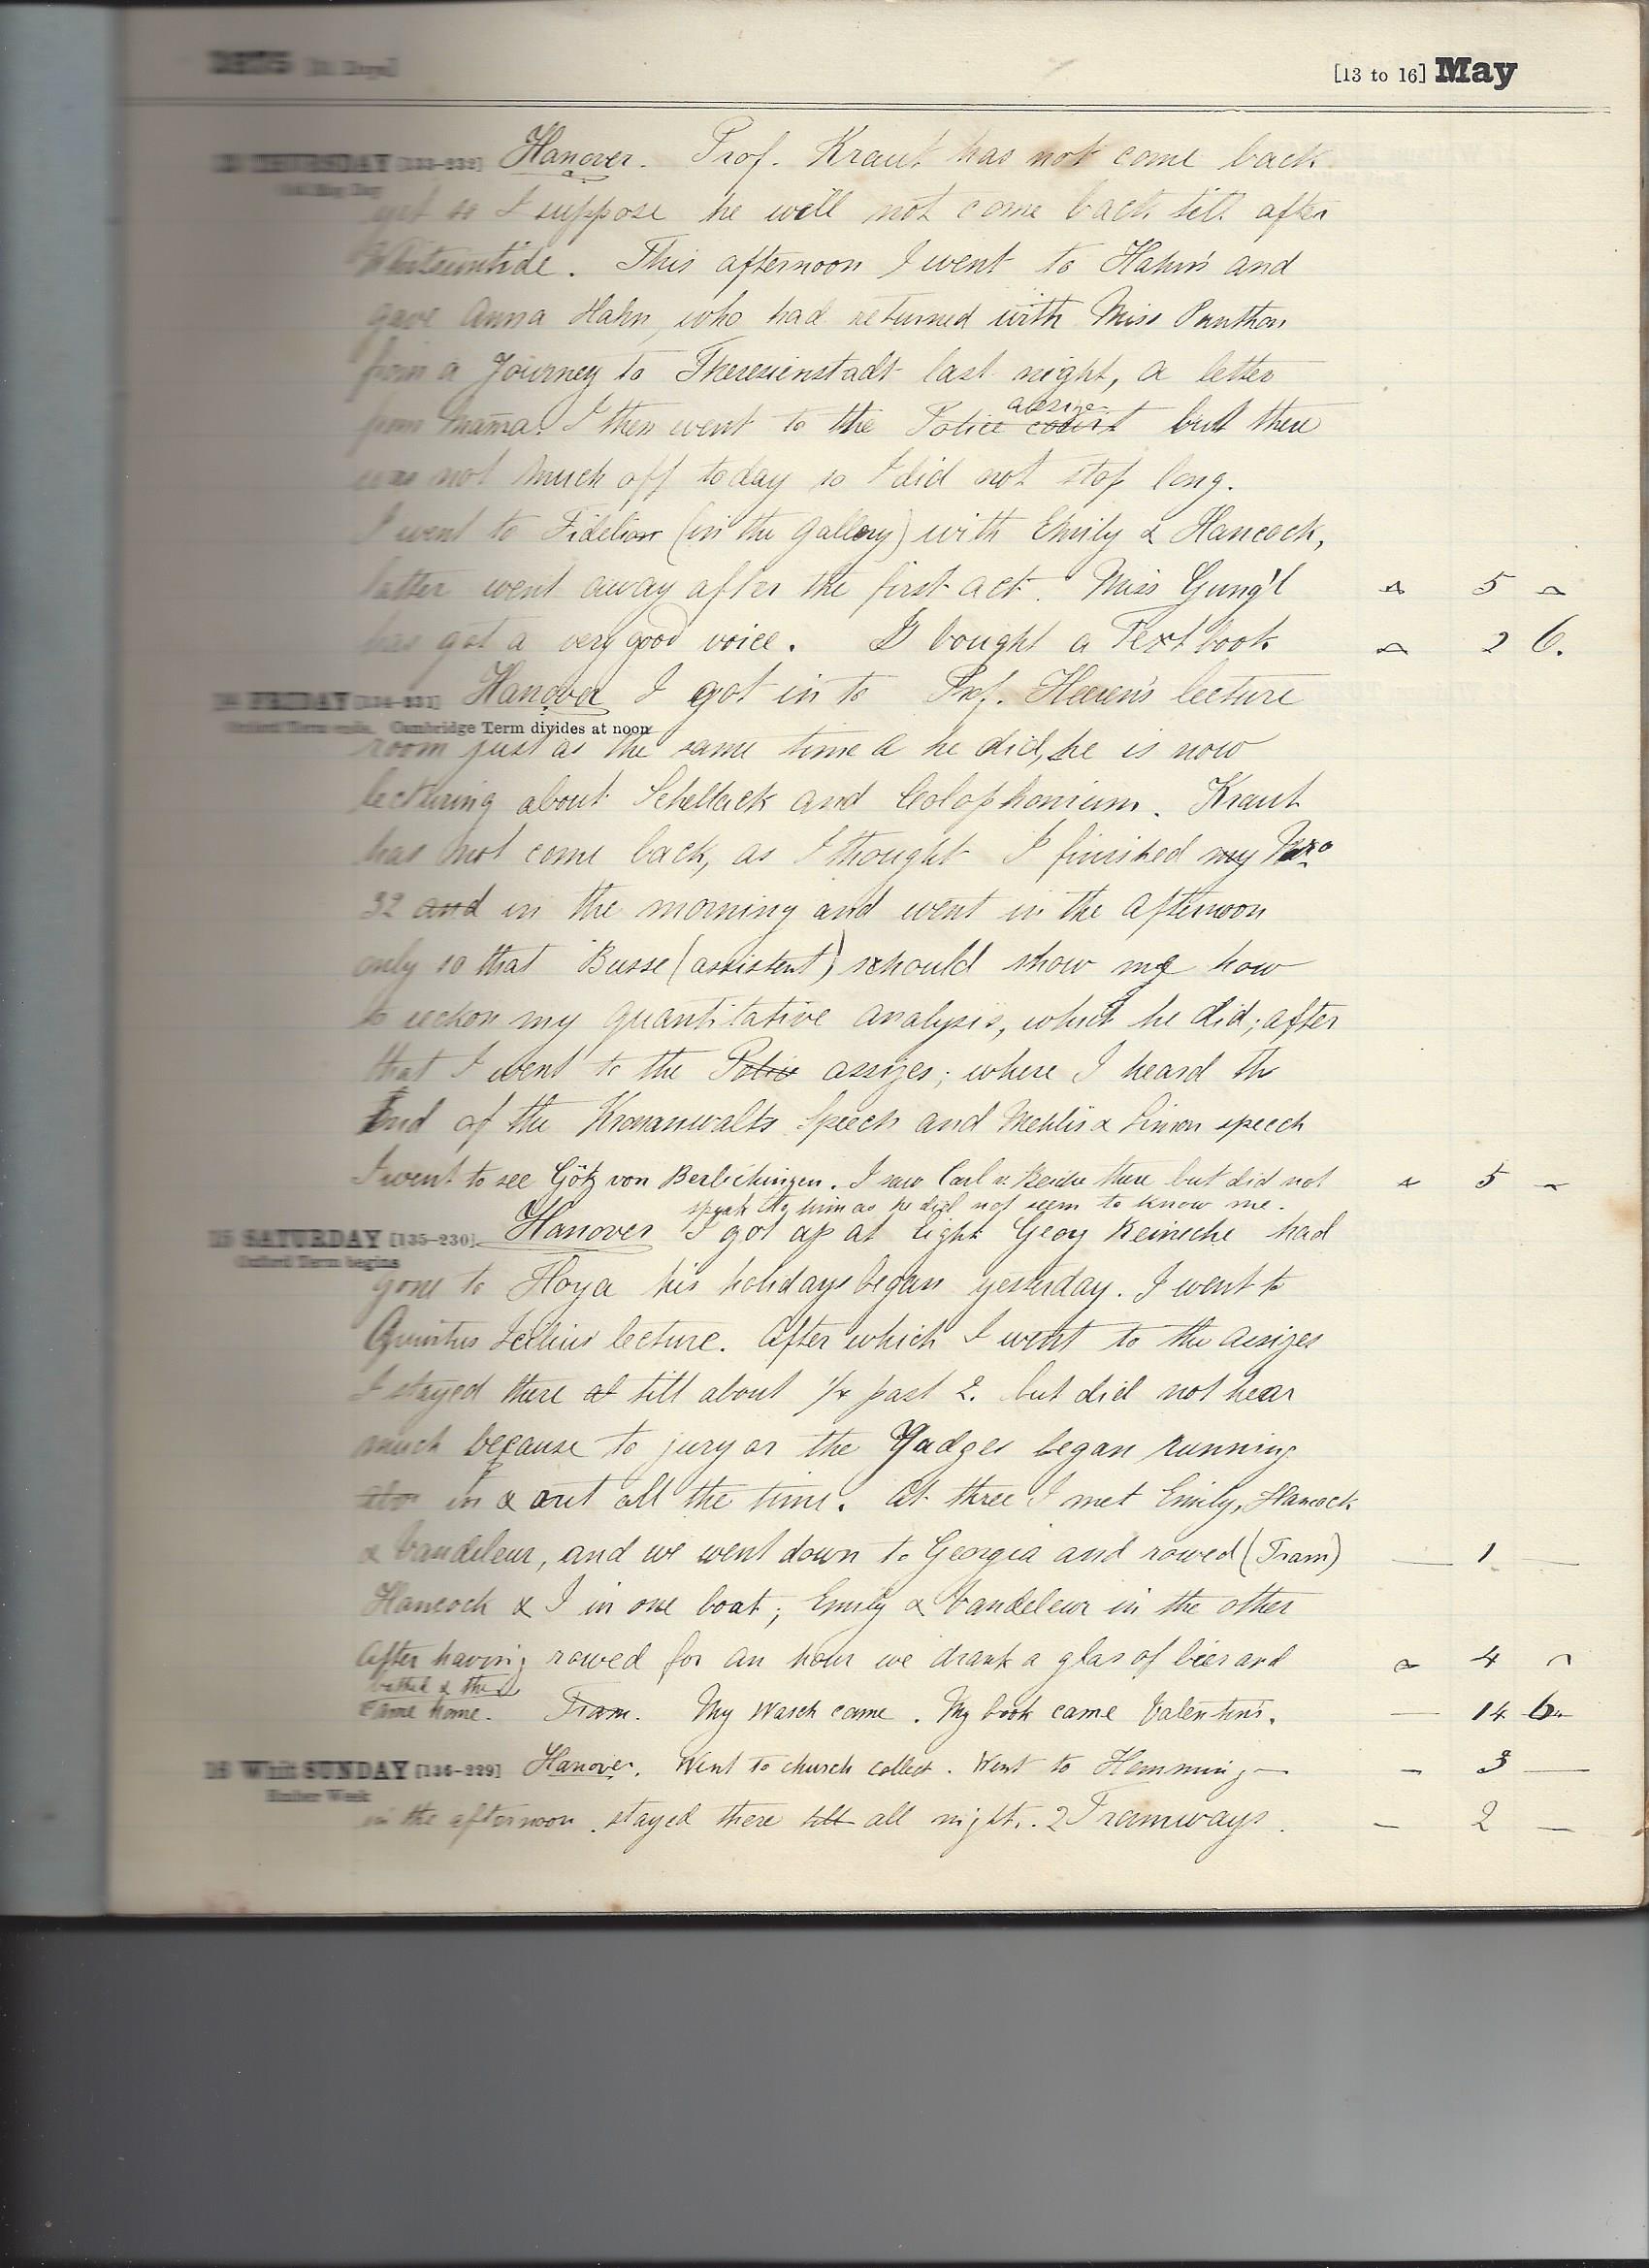 1875 [31 Days] [13 to 16] May
13 THURSDAY [133-232] Hanover. Prof. Kraut has not come back
Old May Day
yet so I suppose he will not come back till after
Whitsuntide. This afternoon I went to Hahn's and
gave Anna Hahn, who had returned with Miss
from a Journey to Theresienstadt last night, a letter
from Mama. I then went to the Police court assize but there
was not much off today so I did not stop long.
I went to Fidelio (in the Gallery) with Emily & Hancock,
latter went away after the first act. Miss Gung'l - 5 -
has got a very good voice. I bought a Text book - 2 6.
14 FRIDAY [134-231] Hanover I got in to Prof. Heeren's lecture
Oxford Term ends. Cambridge Term divides at noon
room just as the same time a he did, he is now
lecturing about Schellack and Colophonium. Kraut
has not come back, as I thought I finished my Nro
32 and in the morning and went in the afternoon
only so that Busse (assistent) should show me how
to reckon my quantitative analysis, which he did; after
that I went to the Police assizes; where I heard th
End of the Kronanwalts Speech and speech
I went to see Götz von Berlichingen. I saw Carl there but did not - 5 -
speak to him as he did not seem to know me.
15 SATURDAY [135-230] Hanover I got up at eight Georg Reinecke had
Oxford Term begins
gone to Hoya his holidays began yesterday. I went to
Quintus Icilius' lecture. After which I went to the assizes
I stayed there at till about 1/4 past 2. but did not hear
much because to jury or the Judges began running
in & out all the time. At three I met Emily, Hancock
& Vandeleur, and we went down to Georgia and rowed (Tram) - 1 -
Hancock & I in one boat; Emily & Vandeleur in the other
After having rowed for an hour we drank a glas of bier and - 4 -
bathed & then
came home. Tram. My Wasch came. My book came Valentin's. - 14 6
16 Whit SUNDAY [136-229] Hanover. Went to church collect. Went to Hemming - 3 -
Ember Week
in the afternoon. stayed there till all night. 2 Tramways. - 2 -